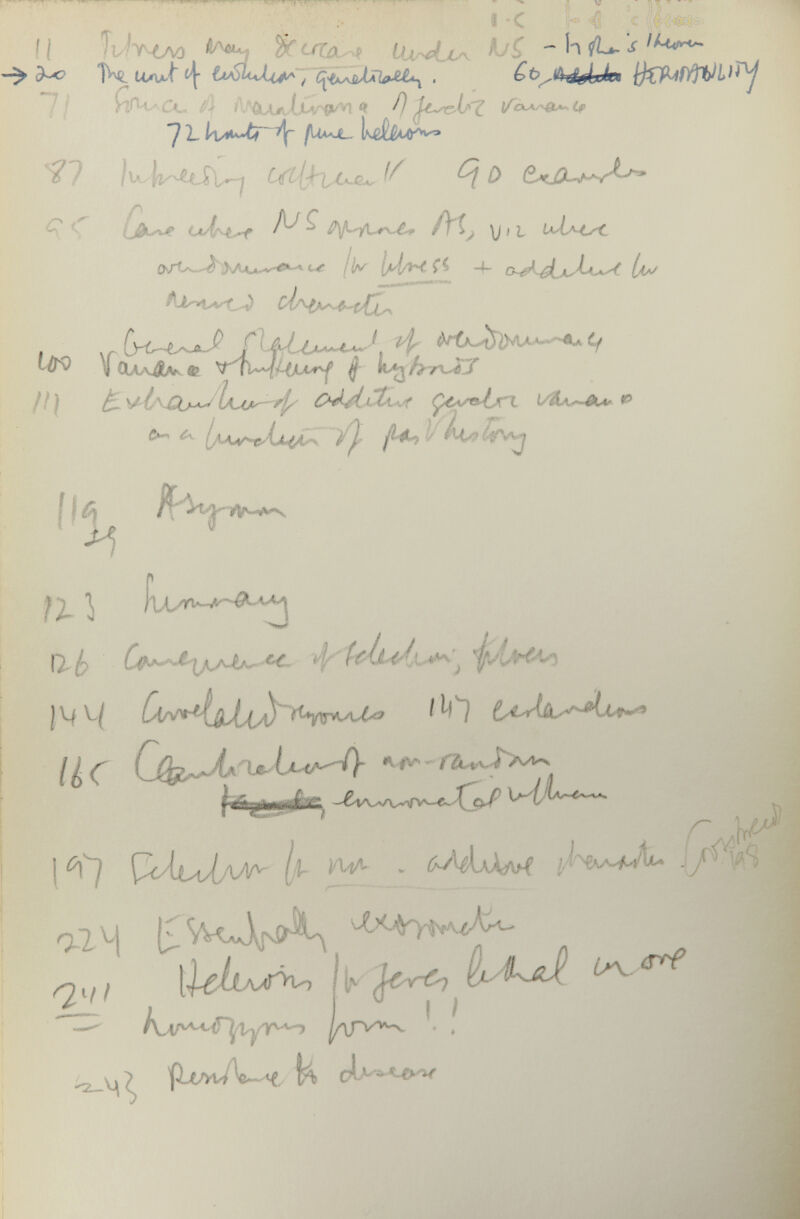 11 Fitness may decrease under NS - Fisher's theorem
→ 20 The unit of evolution, genetically. 60, HERITABILITY
71 Source of genetic variance
72 of pure heterosis
87 Inbreeding coefficient 90 examples
95 Case where NS opposes AS, viz where
overdominance for fitness + additive for
desired character
General statement of overdominance
100 Variance & buffering of hybrids
111 Exhaustion of additive genetic variance
as a function of past history
119 Asymm
123 Summary
126 Consequence of selection, fitness
144 Correlated responses 147 explanations
165 of non-random
environmental
197 Selection for non-additive characters
198
224 Essentially
241 Heterosis for genes lethal in one
homozygous form!!
243 Resistance to disease